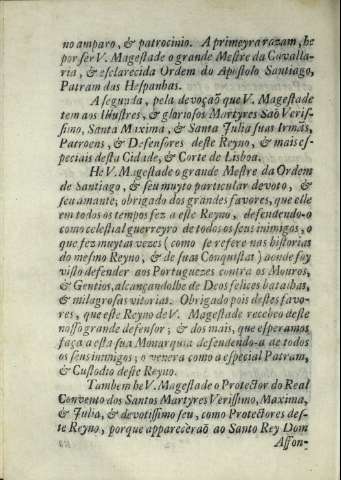 no amparo, & patrocinio. A primeyra razam, he
por ser V. Magestade o grande Mestre da Cavalla-
ria, & esclarecida Ordem do Apostolo Santiago,
Patram das Hespanhas.
A segunda, pela devoçaõ que V. Magestade
tem aos Illustres, & gloriosos Martyres Saõ Veris-
simo, Santa Maxima, & Santa Julia suas Irmãs,
Patroens, & Defensores deste Reyno, & mais es-
peciais desta Cidade, & Corte de Lisboa.
He V. Magestade o grande Mestre da Ordem
de Santiago, & seu muyto particular devoto, &
seu amante; obrigado dos grandes favores, que elle
em todos os tempos fez a este Reyno, defendendo-o
como celestial guerreyro de todos os seus inimigos, o
que fez muytas vezes (como se refere nas historias
do mesmo Reyno, & de suas Conquistas) aonde foy
visto defender aos Portuguezes contra os Mouros,
& Gentios, alcançandolhe de Deos felices batalhas,
& milagrosas vitorias. Obrigado pois destes favo-
res, que este Reyno de V. Magestade recebeo deste
nosso grande defensor; & dos mais, que esperamos
faça a esta sua Monarquia defendendo-a de todos
os seus inimigos; o venera como a especial Patram,
& Custodio deste Reyno.
Tambem he V. Magestade o Protector do Real
Convento dos Santos Martyres Verissimo, Maxima,
& Julia, & devotissimo seu, como Protectores des-
te Reyno, porque appareceraõ ao Santo Rey Dom
Affon-